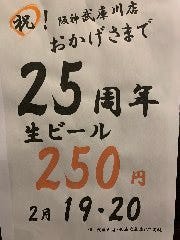 祝! 阪神武庫川店
おかげさまで
25周年
生ビール
250円
2月 19・20